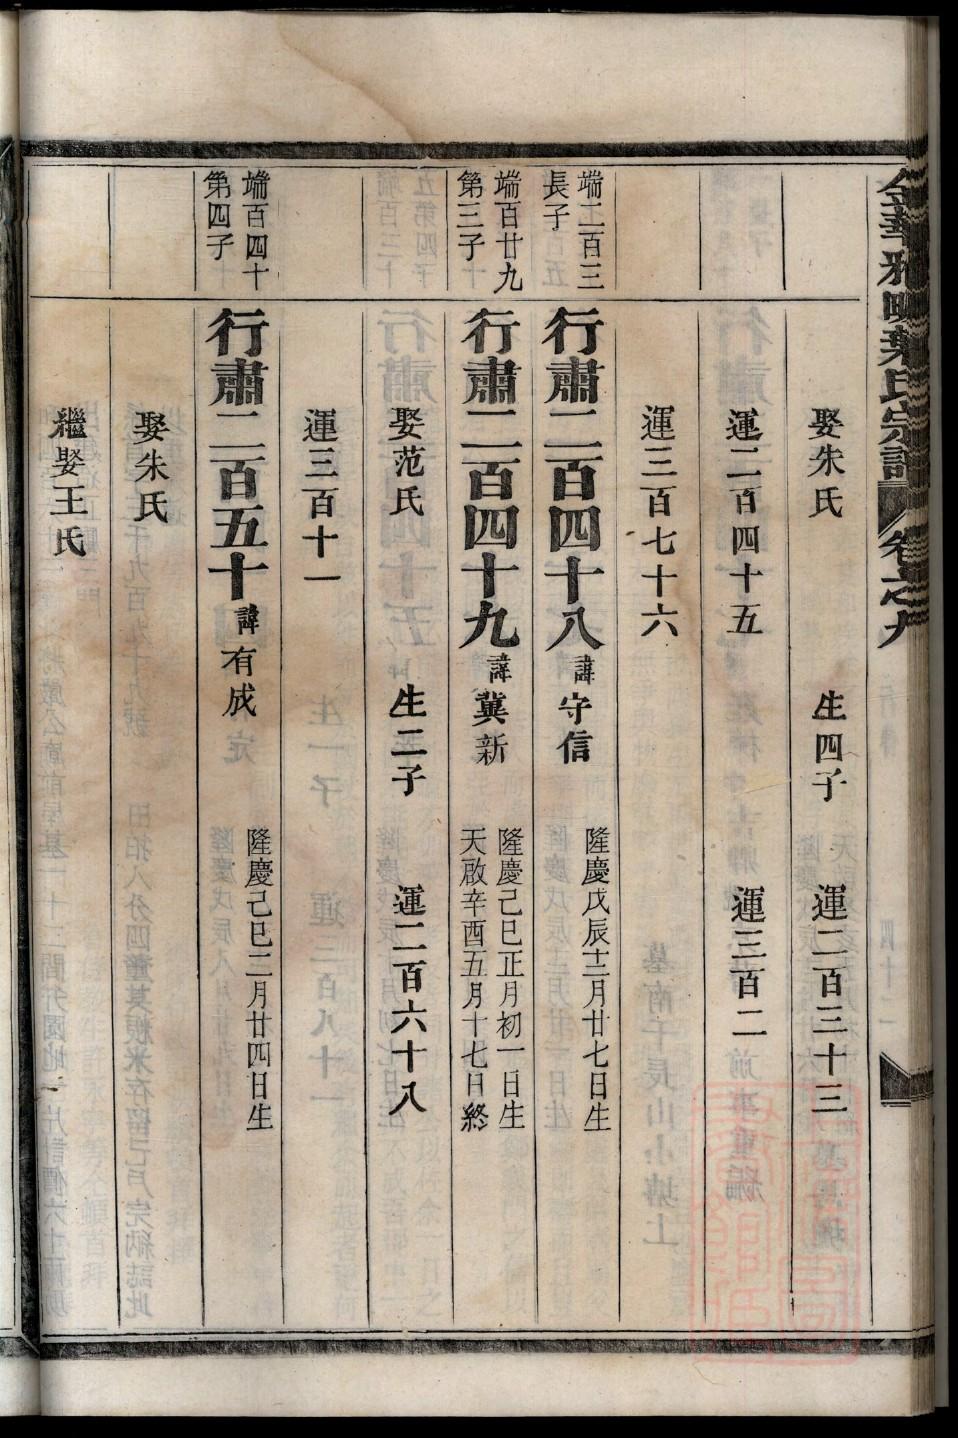 金華雅畈葉氏宗譜 卷之九
娶朱氏 生四子 運二百三十三
運二百四十五 運三百二
運三百七十六
端二百三
長子
行肅二百四十八 諱守信 隆慶戊辰十二月廿七日生
端百廿九
第三子
行肅二百四十九 諱冀新 隆慶己巳正月初一日生
天啟辛酉五月十七日終
娶范氏 生二子 運二百六十八
運三百十一
端百四十
第四子
行肅二百五十 諱有成 隆慶己巳二月廿四日生
娶朱氏
繼娶王氏